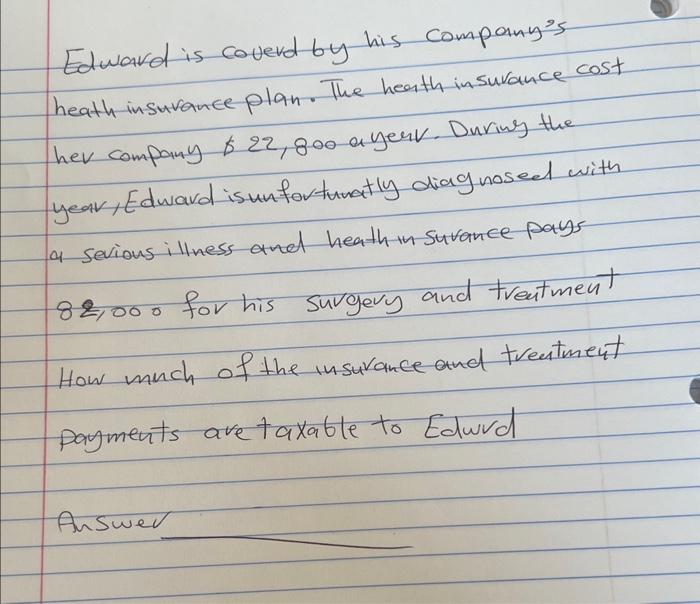 Edward is coverd by his company's
heath insurance plan. The heath insurance cost
her company $ 22,800 a year. During the
year, Edward is unfortunatly diagnosed with
a serious illness and heath insurance pays
82,000 for his surgery and treatment
How much of the insurance and treatment
payments are taxable to Edwrd
Answer